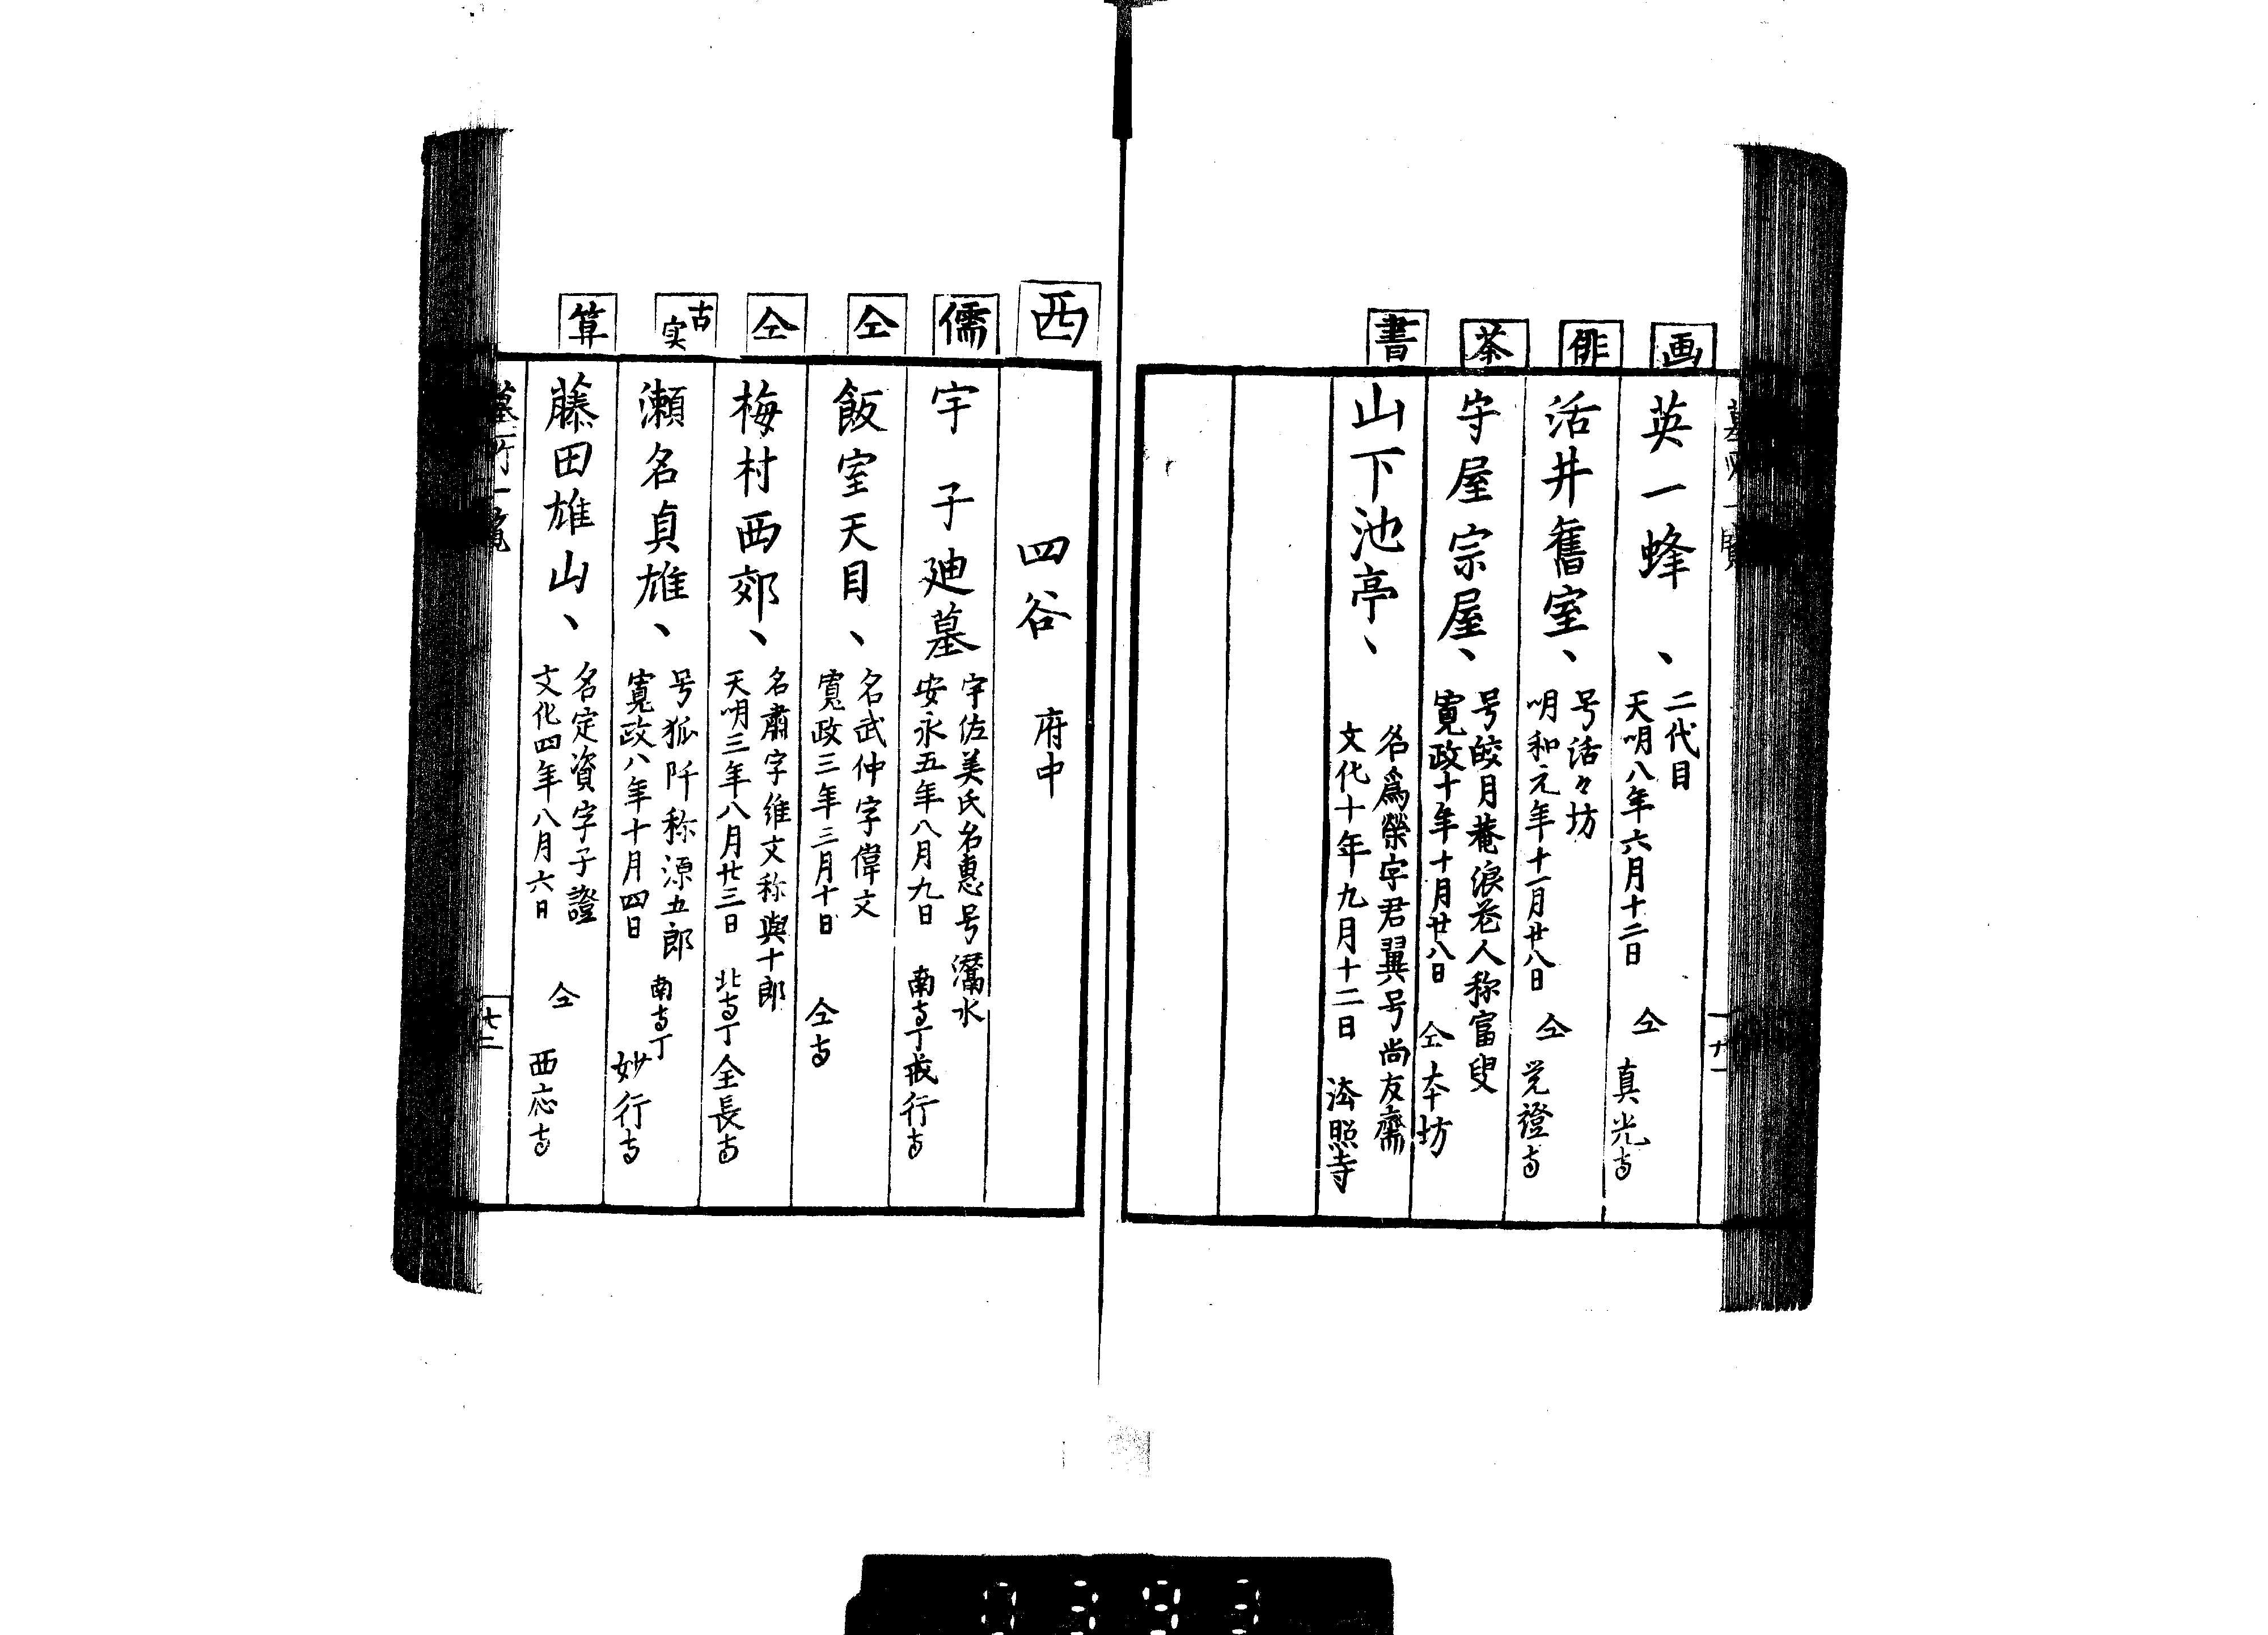 画
英一蜂、
二代目
天明八年六月十二日
仝
真光寺
俳
活井舊室、
号活々坊
明和元年十一月廿八日
仝
覚證寺
茶
守屋宗屋、
号皎月菴浪花人称富叟
寛政十年十月廿八日
仝
本坊
書
山下池亭、
名爲榮字君翼号尚友齋
文化十年九月十二日
法照寺
西
四谷
府中
儒
宇子廸墓
宇佐美氏名惠号灊水
安永五年八月九日
南寺丁
戒行寺
仝
飯室天目、
名武仲字偉文
寛政三年三月十日
仝寺
仝
梅村西郊、
名肅字維文称與十郎
天明三年八月廿三日
北寺丁
全長寺
古実
瀬名貞雄、
号狐阡称源五郎
寛政八年十月四日
南寺丁
妙行寺
算
藤田雄山、
名定資字子證
文化四年八月六日
仝
西応寺
墓所一覧
七二